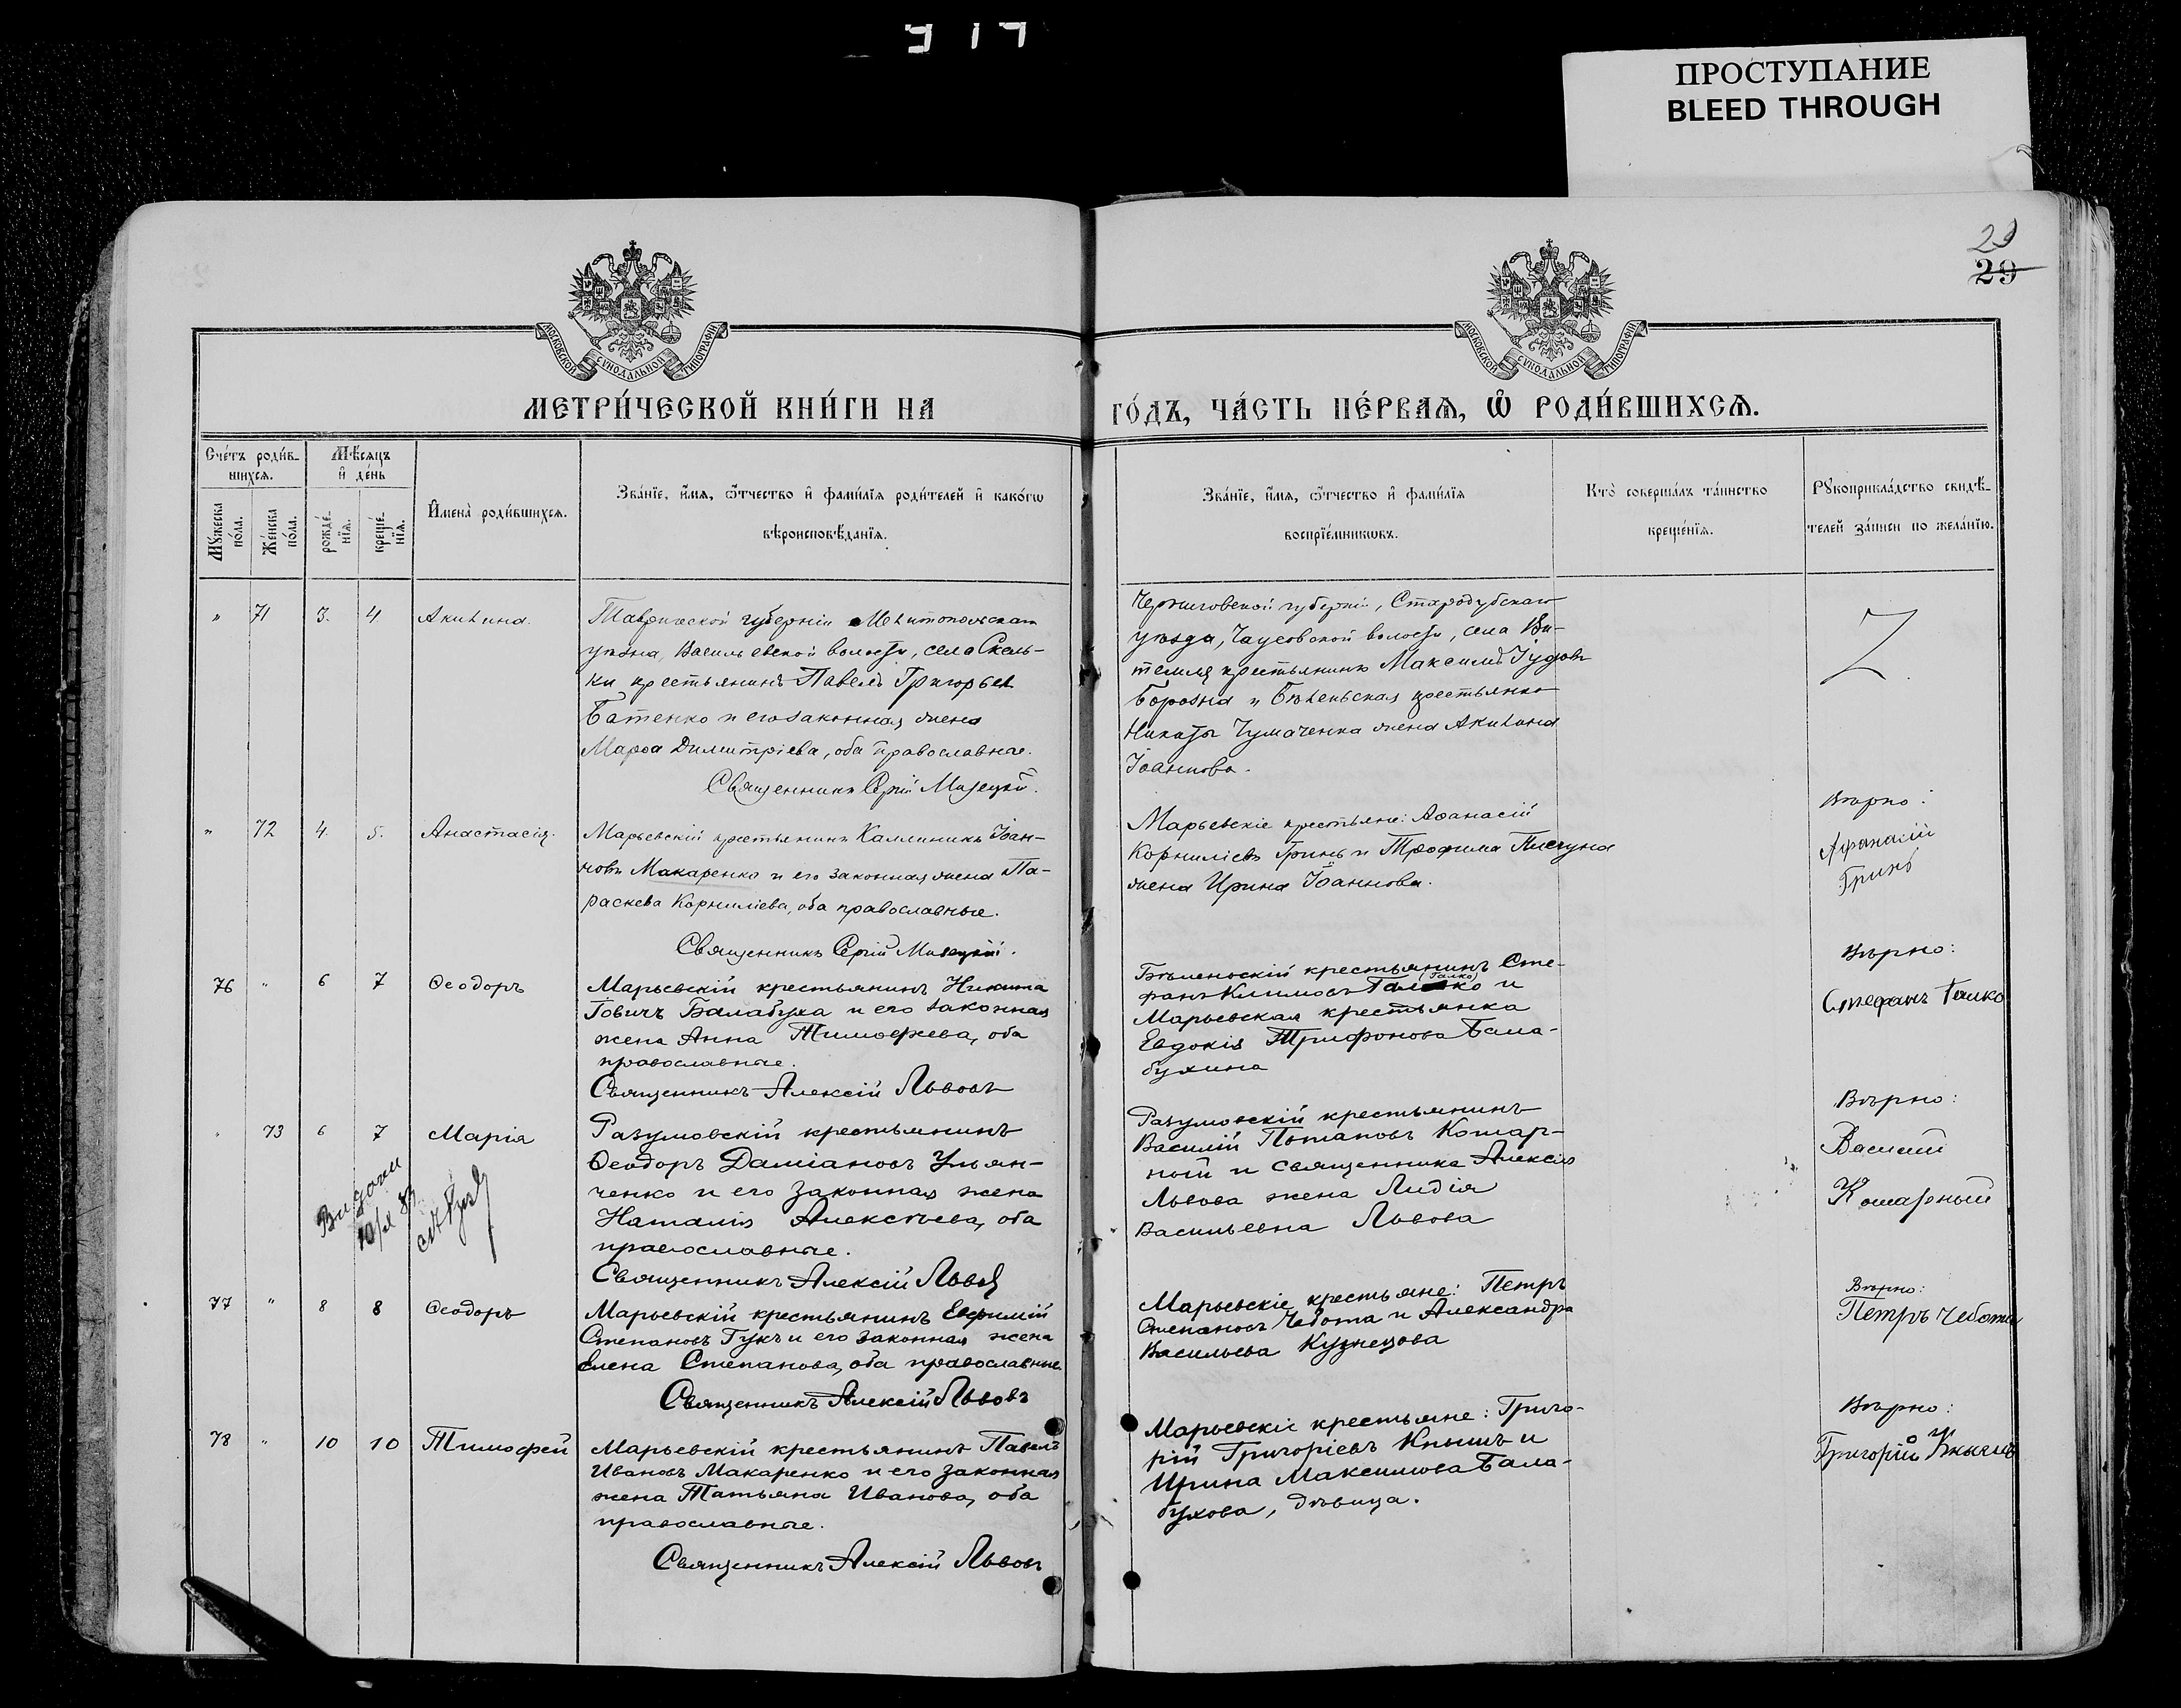 ПРОСТУПАНИЕ
BLEED THROUGH
29
29
МОСКОВСКОЙ СУНОДАЛЬНОЙ ТИПОГРАФІИ
МОСКОВСКОЙ СУНОДАЛЬНОЙ ТИПОГРАФІИ
МЕТРИ́ЧЕСКОЙ КНИ́ГИ НА
ГО́ДЪ, ЧА́СТЬ ПЕ́РВАѦ, Ѡ҆ РОДИ́ВШИХСѦ.
Сче́тъ роди́в-
шихсѧ.
Мѣ́сѧцъ
и҆ де́нь
Мꙋ́жеска по́ла.
Же́нска по́ла.
рожде́-
нїѧ.
креще́-
нїѧ.
И҆мена̀ роди́вшихсѧ.
Зва́нїе, и҆́мѧ, ѻ҆́тчество и҆ фами́лїѧ роди́телей и҆ како́гѡ
вѣроисповѣ́данїѧ.
Зва́нїе, и҆́мѧ, ѻ҆́тчество и҆ фами́лїѧ
воспрїе́мникѡвъ.
Кто̀ соверша́лъ та́инство
креще́нїѧ.
Рꙋкоприкла́дство свидѣ́-
телей за́писи по жела́нїю.
" 71 3. 4 Акилина.
Таврической губерніи Мелитопольскаго
уѣзда, Васильевской волости, села Скель-
ки крестьянинъ Павелъ Григорьев
Батенко и его законная жена
Марѳа Димитріева, оба православные.
Священникъ
Черниговской губерніи, Стародубскаго
уѣзда, волости, села Ви-
темля крестьянинъ Максимъ Іудовъ
Борозна и Бѣленьская крестьянка
Никиты Чумаченка жена Акилина
Іоаннова.
" 72 4. 5. Анастасія.
Марьевскій крестьянинъ Каллиникъ Іоан-
новъ Макаренко и его законная жена Па-
раскева Корниліева, оба православные.
Священникъ
Марьевскіе крестьяне: Аѳанасій
Корниліевъ Гринь и Трофима Писчуна
жена Ирина Іоаннова.
Вѣрно:
Афанасій
Гринь
76 " 6 7 Ѳеодоръ
Марьевскій крестьянинъ Никита
Іовичъ Балабуха и его законная
жена Анна Тимоѳеева, оба
православные.
Священникъ Алексій Львовъ
Бѣленьскій крестьянинъ Сте-
фанъ Климовъ (Галко) и
Марьевская крестьянка
Евдокія Трифонова Бала-
бухина
Вѣрно:
Стефанъ Галко
" 73 6 7 Марія
Разумовскій крестьянинъ
Ѳеодоръ Даміановъ Ульян-
ченко и его законная жена
Наталія Алексѣева, оба
православные.
Священникъ Алексій Львовъ
Разумовскій крестьянинъ
Василій Потаповъ Комар-
ный и священника Алексія
Львова жена Лидія
Васильевна Львова
Вѣрно:
Василій
Комарный
77 " 8 8 Ѳеодоръ
Марьевскій крестьянинъ Евфимій
Степановъ Гукъ и его законная жена
Елена Степанова, оба православные.
Священникъ Алексій Львовъ
Марьевскіе крестьяне: Петръ
Степановъ Чебота и Александра
Васильева Кузнецова
Вѣрно:
Петръ Чебота
78 " 10 10 Тимоѳей
Марьевскій крестьянинъ Павелъ
Ивановъ Макаренко и его законная
жена Татьяна Иванова, оба
православные.
Священникъ Алексій Львовъ
Марьевскіе крестьяне: Григо-
рій Григоріевъ Кнышъ и
Ирина Максимова Бала-
бухова, дѣвица.
Вѣрно:
Григорій Кнышъ